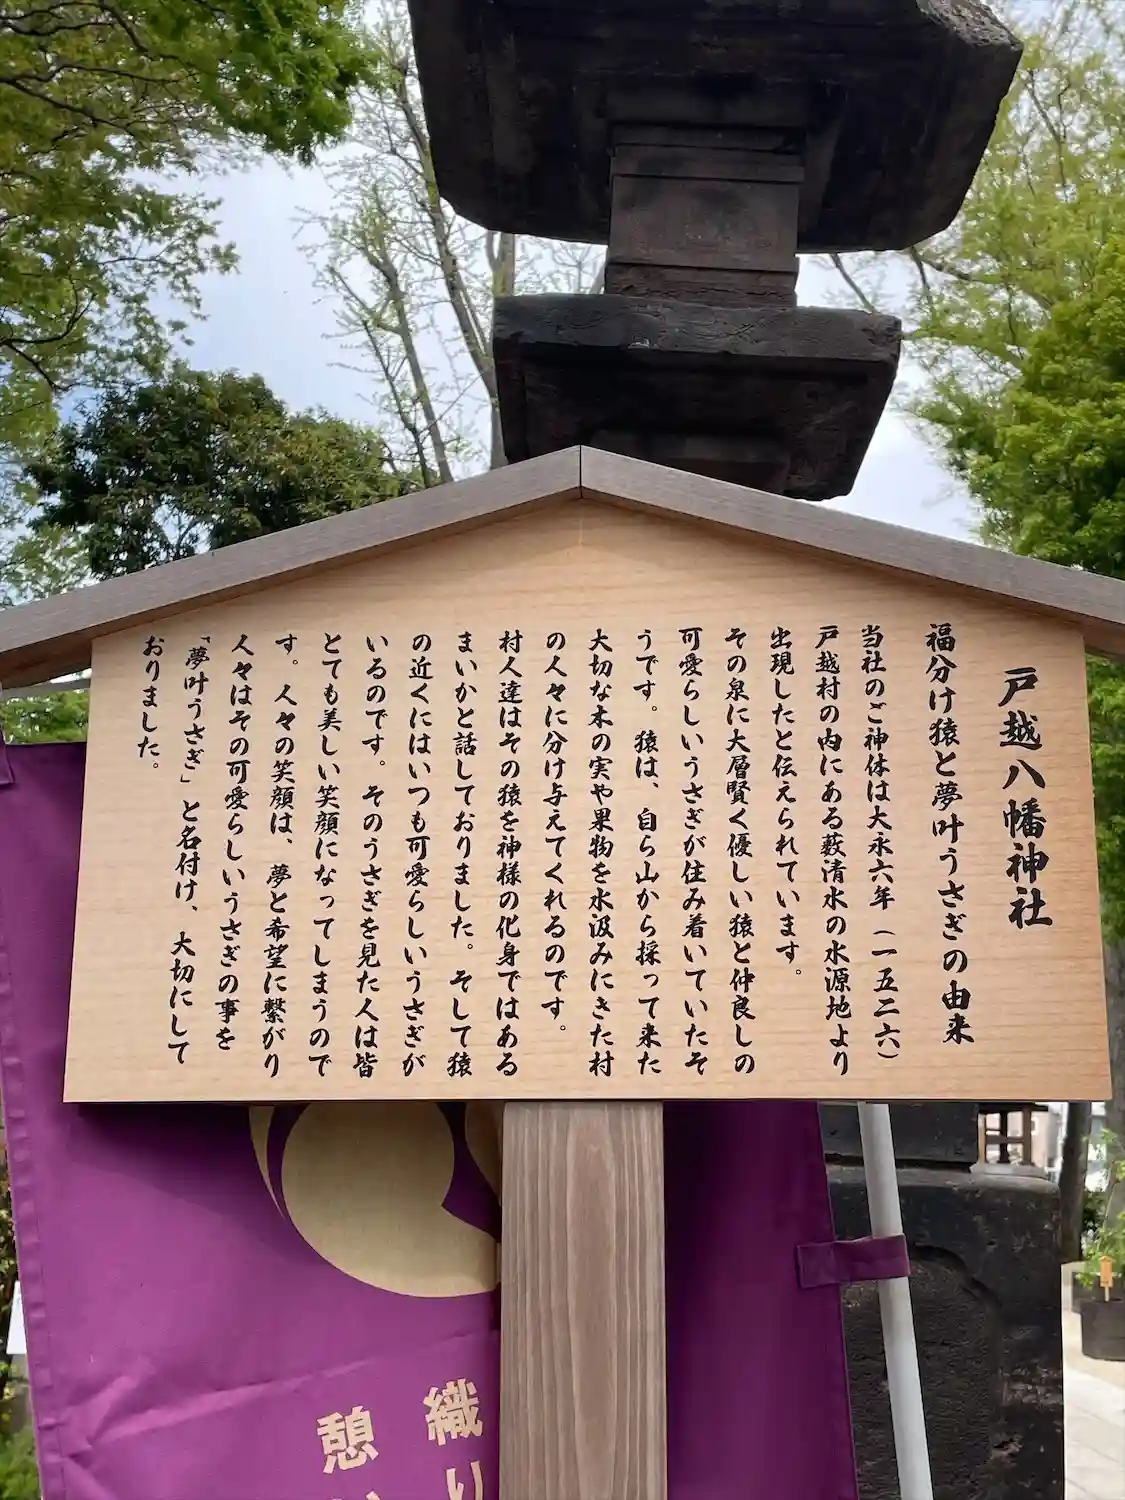 戸越八幡神社
福分け猿と夢叶うさぎの由来
当社のご神体は大永六年（一五二六）
戸越村の内にある薮清水の水源地より
出現したと伝えられています。
その泉に大層賢く優しい猿と仲良しの
可愛らしいうさぎが住み着いていたそ
うです。猿は、自ら山から採って来た
大切な木の実や果物を水汲みにきた村
の人々に分け与えてくれるのです。
村人達はその猿を神様の化身ではある
まいかと話しておりました。そして猿
の近くにはいつも可愛らしいうさぎが
いるのです。そのうさぎを見た人は皆
とても美しい笑顔になってしまうので
す。人々の笑顔は、夢と希望に繋がり
人々はその可愛らしいうさぎの事を
「夢叶うさぎ」と名付け、大切にして
おりました。
織り
憩